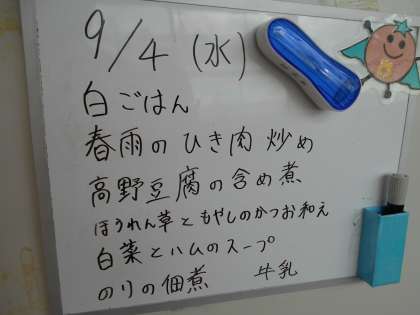 9/4 (水)
白ごはん
春雨のひき肉炒め
高野豆腐の含め煮
ほうれん草ともやしのかつお和え
白菜とハムのスープ
のりの佃煮 牛乳